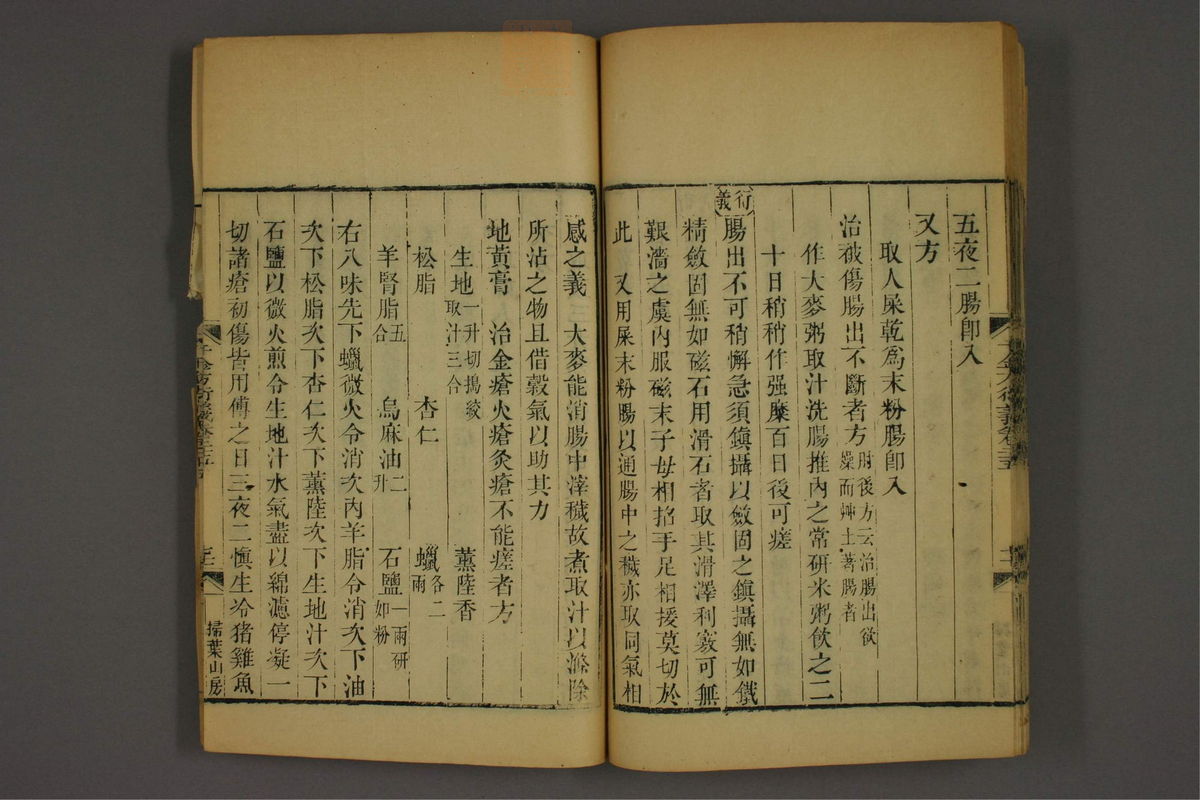 五夜二腸卽入
又方
取人屎乾爲末粉腸卽入
治被傷腸出不斷者方肘後方云治腸出欲燥而艸土著腸者
作大麥粥取汁洗腸推內之常研米粥飮之二
十日稍稍作强糜百日後可瘥
衍義
腸出不可稍懈急須鎭攝以斂固之鎭攝無如鐵
精斂固無如磁石用滑石者取其滑澤利竅可無
艱濇之虞內服磁末子母相招手足相援莫切於
此 又用屎末粉腸以通腸中之穢亦取同氣相
感之義 大麥能消腸中滓穢故煮取汁以滌除
所沾之物且借穀氣以助其力
地黃膏 治金瘡火瘡灸瘡不能瘥者方
生地一升切搗絞取汁三合 薰陸香
松脂 杏仁 蠟各二兩
羊腎脂五合 烏麻油二升 石鹽一兩研如粉
右八味先下蠟微火令消次內羊脂令消次下油
次下松脂次下杏仁次下薰陸次下生地汁次下
石鹽以微火煎令生地汁水氣盡以綿濾停凝一
切諸瘡初傷皆用傅之日三夜二愼生冷猪雞魚
掃葉山房